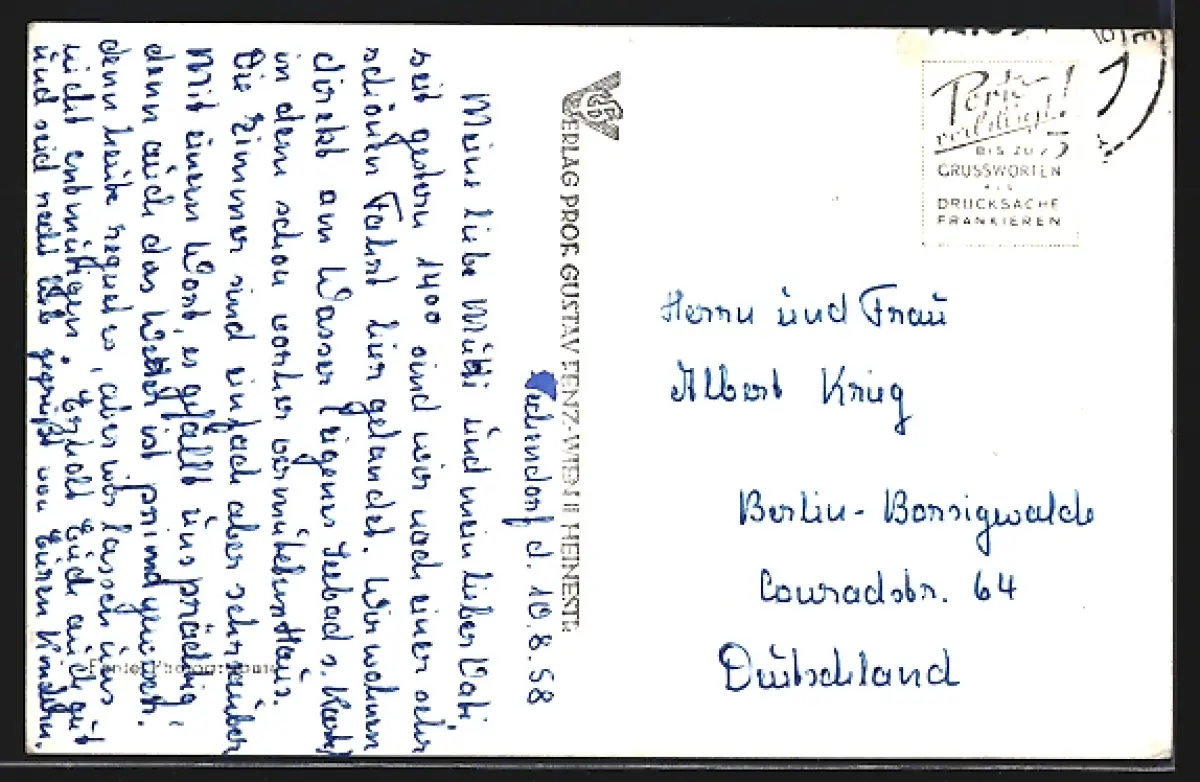 d. 10.8.58
Meine liebe Mutti und mein lieber Vati
seit gestern 1400 sind wir nach einer sehr
schönen Fahrt hier gelandet. Wir wohnen
direkt am Wasser (eigenes Seebad s. Karte)
in dem schon vorher Haus.
Die Zimmer sind einfach aber sehr sauber
Mit einem Wort, es gefällt uns prächtig,
denn auch das Wetter ist prima
denn heute regnet es, aber wir lassen uns
nicht entmutigen. Erholt Euch auch gut
und seid recht lieb gegrüßt von Euren Kindern.
Echte Photographie
VERLAG PROF. GUSTAV FENZ-WIEN II HEINESTR
verbilligt!
BIS ZU 5
GRUSSWORTEN
ALS
DRUCKSACHE
FRANKIEREN
Herrn und Frau
Albert Krieg
Berlin-Borsigwalde
Conradstr. 64
Deutschland